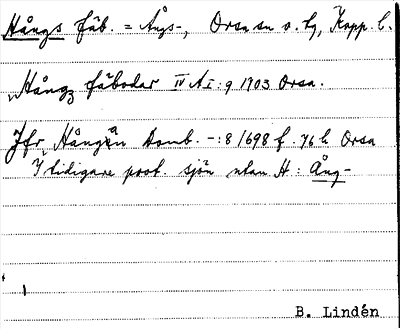 Hångs fäb. = Ångs-, Orsa sn o. tg, Kopp. l.
"Hångz fäbodar IV A I : 9 1703 Orsa.
Jfr Hången Domb. -: 8 1698 f. 76 b Orsa
I tidigare prot. sjön utan H : Ång-
B. Lindén